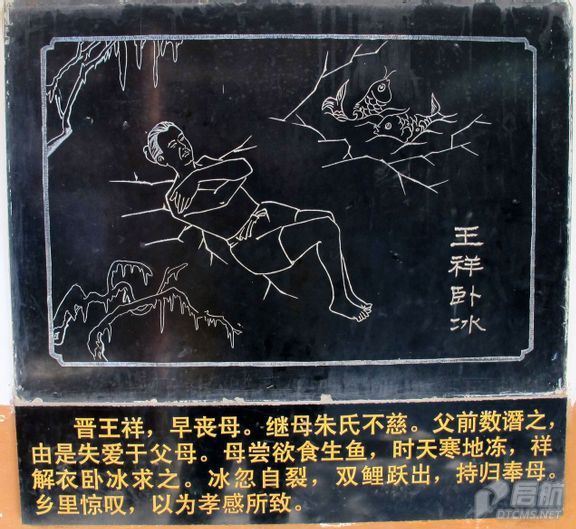 王祥卧冰
晋王祥，早丧母。继母朱氏不慈。父前数谮之，
由是失爱于父母。母尝欲食生鱼，时天寒地冻，祥
解衣卧冰求之。冰忽自裂，双鲤跃出，持归奉母。
乡里惊叹，以为孝感所致。
启航
DTCMS.NET